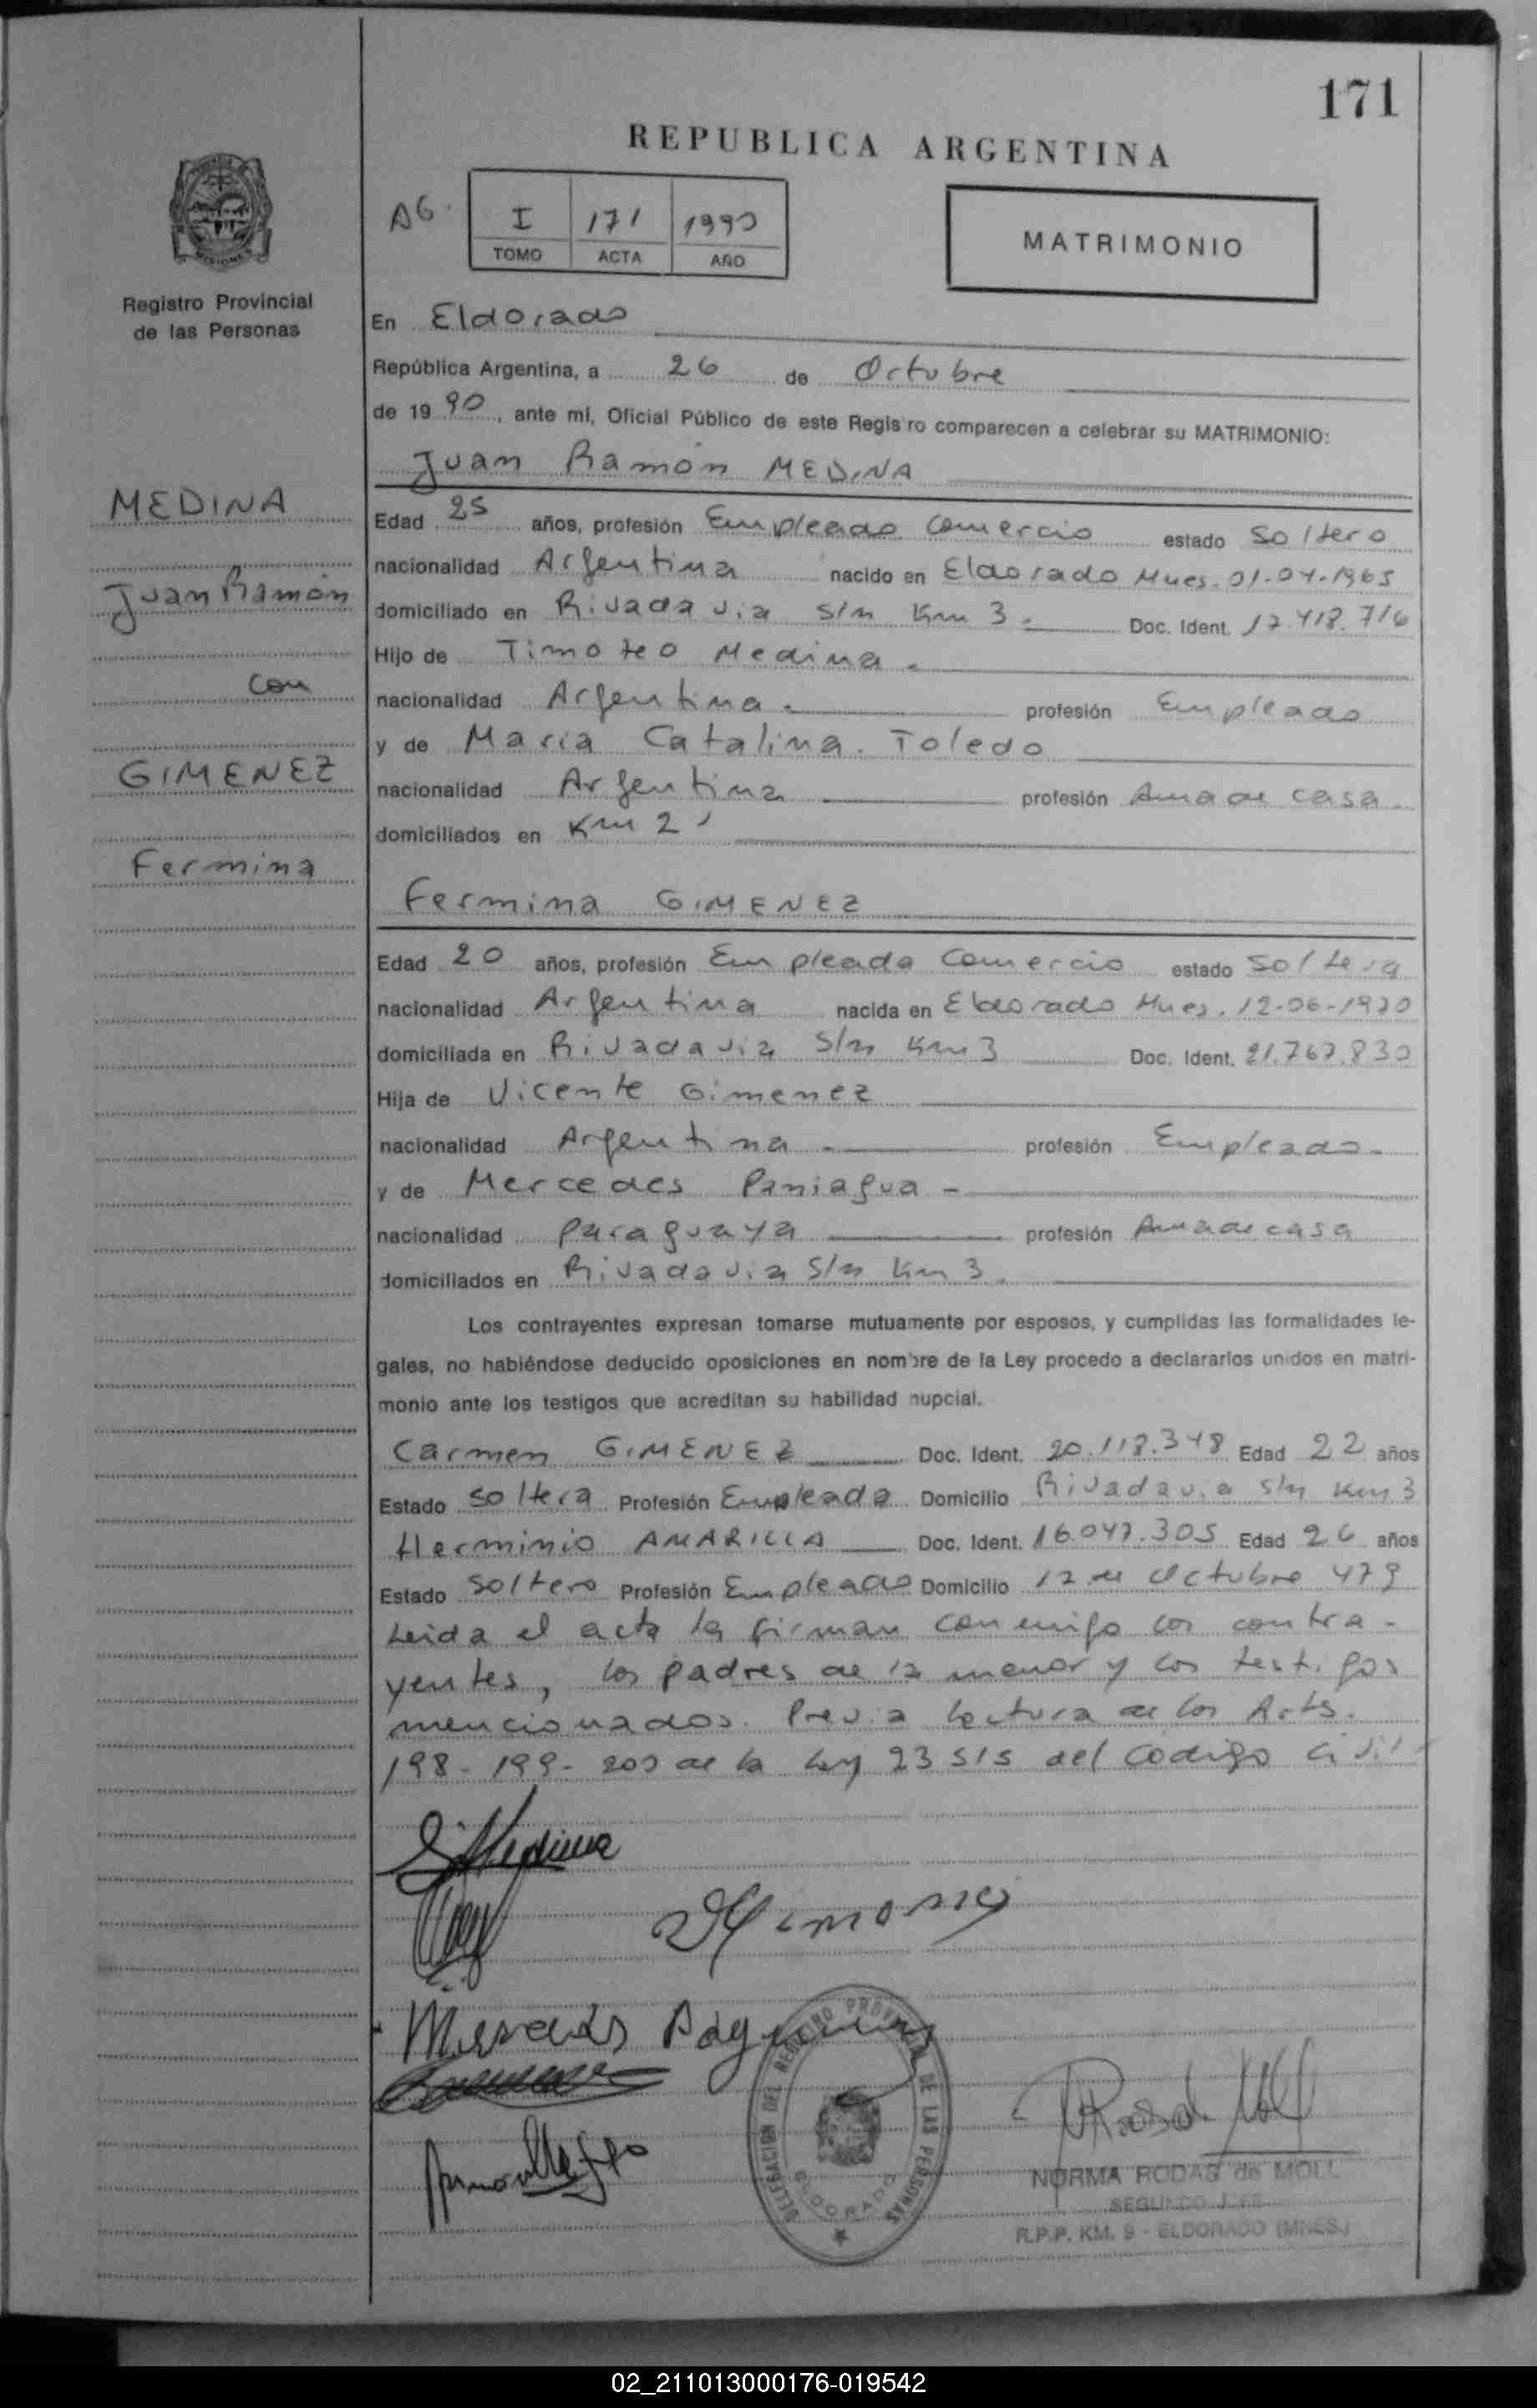 171
REPUBLICA ARGENTINA
A6.
I 171 1990
TOMO ACTA AÑO
MATRIMONIO
MISIONES
Registro Provincial
de las Personas
En Eldorado
República Argentina, a 26 de Octubre
de 19 90, ante mi, Oficial Público de este Regis ro comparecen a celebrar su MATRIMONIO:
Juan Ramón MEDINA
MEDINA
Juan Ramón
con
GIMENEZ
Fermina
Edad 25 años, profesión Empleado Comercio estado Soltero
nacionalidad Argentina nacido en Eldorado Mnes. 01-04-1965
domiciliado en Rivadavia s/n Km 3. Doc. Ident. 17.418.716
Hijo de Timoteo Medina.
nacionalidad Argentina. profesión Empleado
y de Maria Catalina Toledo
nacionalidad Argentina profesión Ama de casa.
domiciliados en Km 2
Fermina GIMENEZ
Edad 20 años, profesión Empleada Comercio estado Soltera
nacionalidad Argentina nacida en Eldorado Mnes. 12-06-1970
domiciliada en Rivadavia S/n Km 3 Doc. Ident. 21.767.830
Hija de Vicente Gimenez
nacionalidad Argentina profesión Empleado.
y de Mercedes Paniagua -
nacionalidad Paraguaya profesión Ama de casa
domiciliados en Rivadavia S/n Km 3.
Los contrayentes expresan tomarse mutuamente por esposos, y cumplidas las formalidades le-
gales, no habiéndose deducido oposiciones en nombre de la Ley procedo a declararlos unidos en matri-
monio ante los testigos que acreditan su habilidad nupcial.
Carmen GIMENEZ Doc. Ident. 20.118.348 Edad 22 años
Estado Soltera Profesión Empleada Domicilio Rivadavia s/n Km 3
Herminio AMARILLA Doc. Ident. 16.047.305 Edad 26 años
Estado Soltero Profesión Empleado Domicilio 12 de Octubre 479
Leida el acta la firman conmigo los contra-
yentes, los padres de la menor y los testigos
mencionados. Previa lectura de los Arts.
198-199-200 de la Ley 23515 del Código Civil
Medina
DELEGACION DEL REGISTRO PROVINCIAL DE LAS PERSONAS
ELDORADO
NORMA RODAS de MOLL
SEGUNDO JEFE
R.P.P. KM. 9 - ELDORADO (MNES.)
02_211013000176-019542